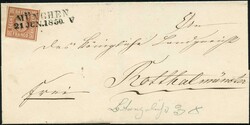 MÜNCHEN
21 JUN. 1850. V
An
das königliche Landgericht
Rotthalmünster
frei